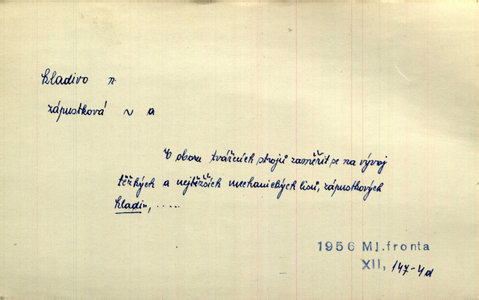 kladivo n
zápustková ~ a
V oboru tvářecích strojů zaměřit se na vývoj
těžkých a nejtěžších mechanických lisů, zápustkových
kladiv, .....
1956 Ml.fronta
XII, 147-4d